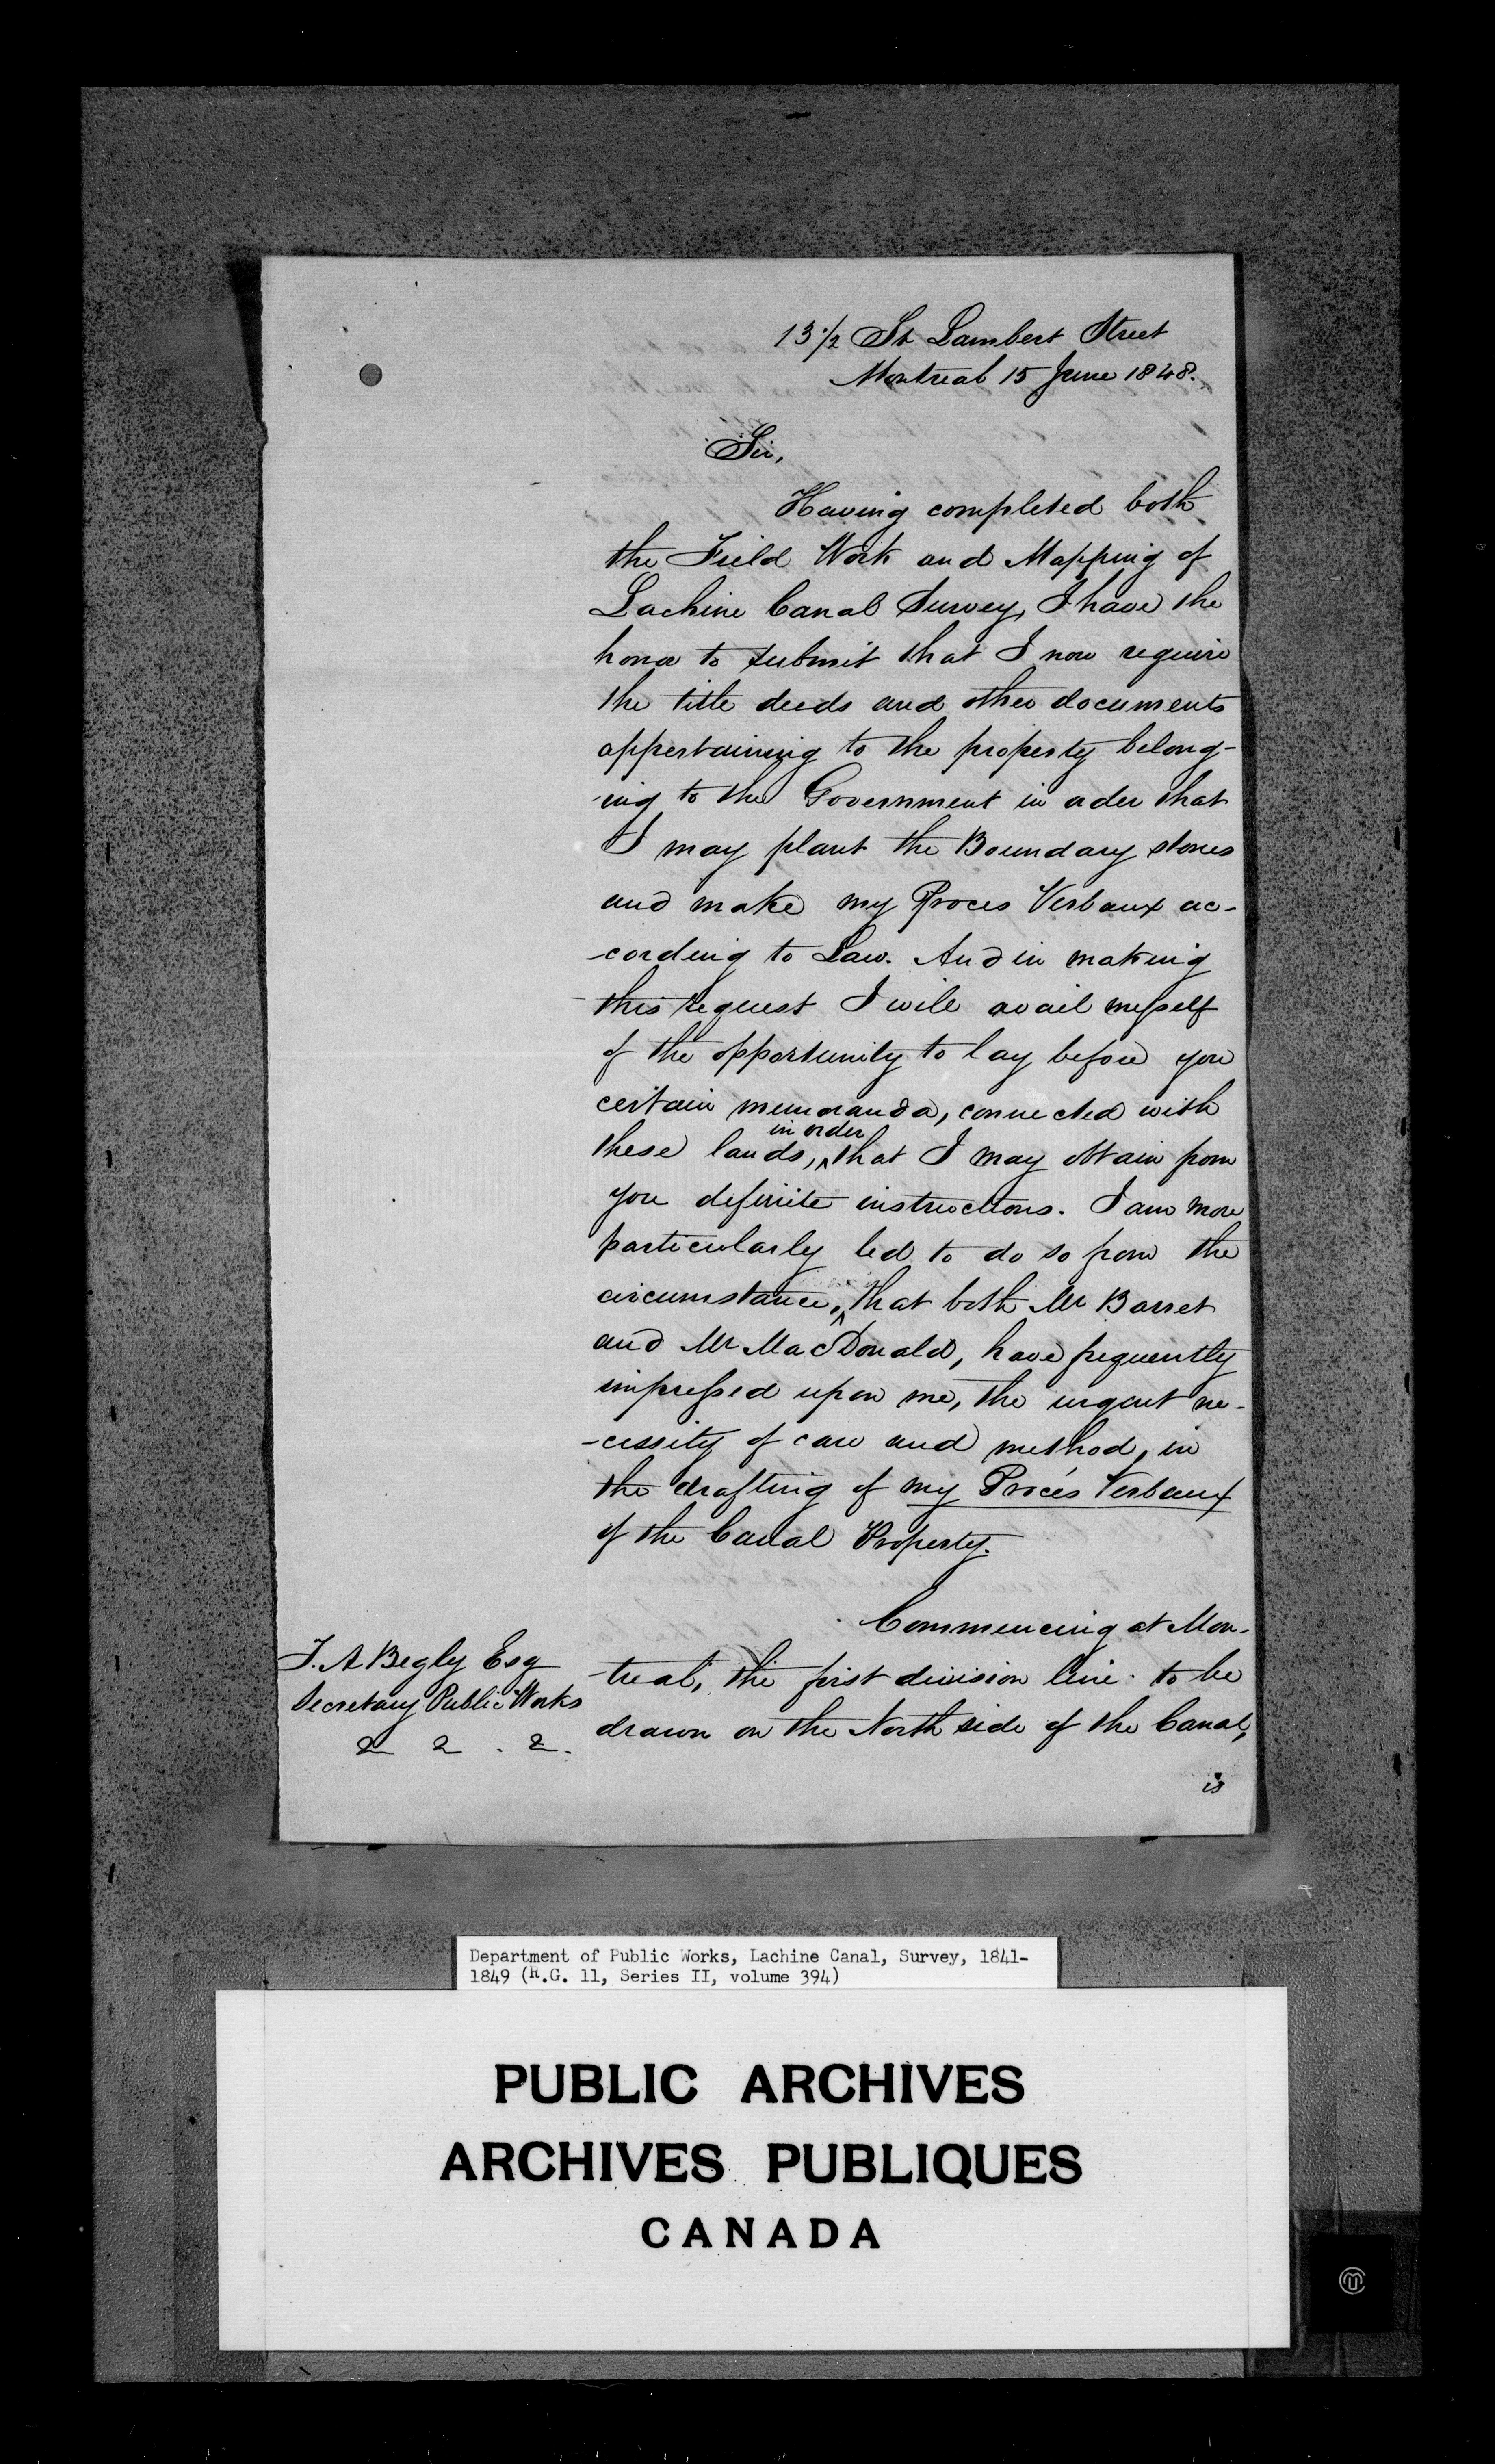 13 1/2 St Lambert Street
Montreal 15 June 1848.
Sir,
Having completed both
the Field Work and Mapping of
Lachine Canal Survey, I have the
honor to submit that I now require
the title deeds and other documents
appertaining to the property belong-
-ing to the Government in order that
I may plant the Boundary stones
and make my Proces Verbaux ac-
-cording to Law. And in making
this request I will avail myself
of the opportunity to lay before you
certain memoranda, connected with
in order
these lands, ^ that I may obtain from
you definite instructions. I am more
particularly led to do so from the
circumstance, ^ that both Mr Barret
and Mr MacDonald, have frequently
impressed upon me, the urgent ne-
-cessity of care and method, in
the drafting of my Procés Verbaux
of the Canal Property.
Commencing at Mon-
-treal, the first division line to be
drawn on the North side of the Canal,
is
T. A Begly Esq
Secretary Public Works
& & . &.
Department of Public Works, Lachine Canal, Survey, 1841-
1849 (R.G. 11, Series II, volume 394)
PUBLIC ARCHIVES
ARCHIVES PUBLIQUES
CANADA